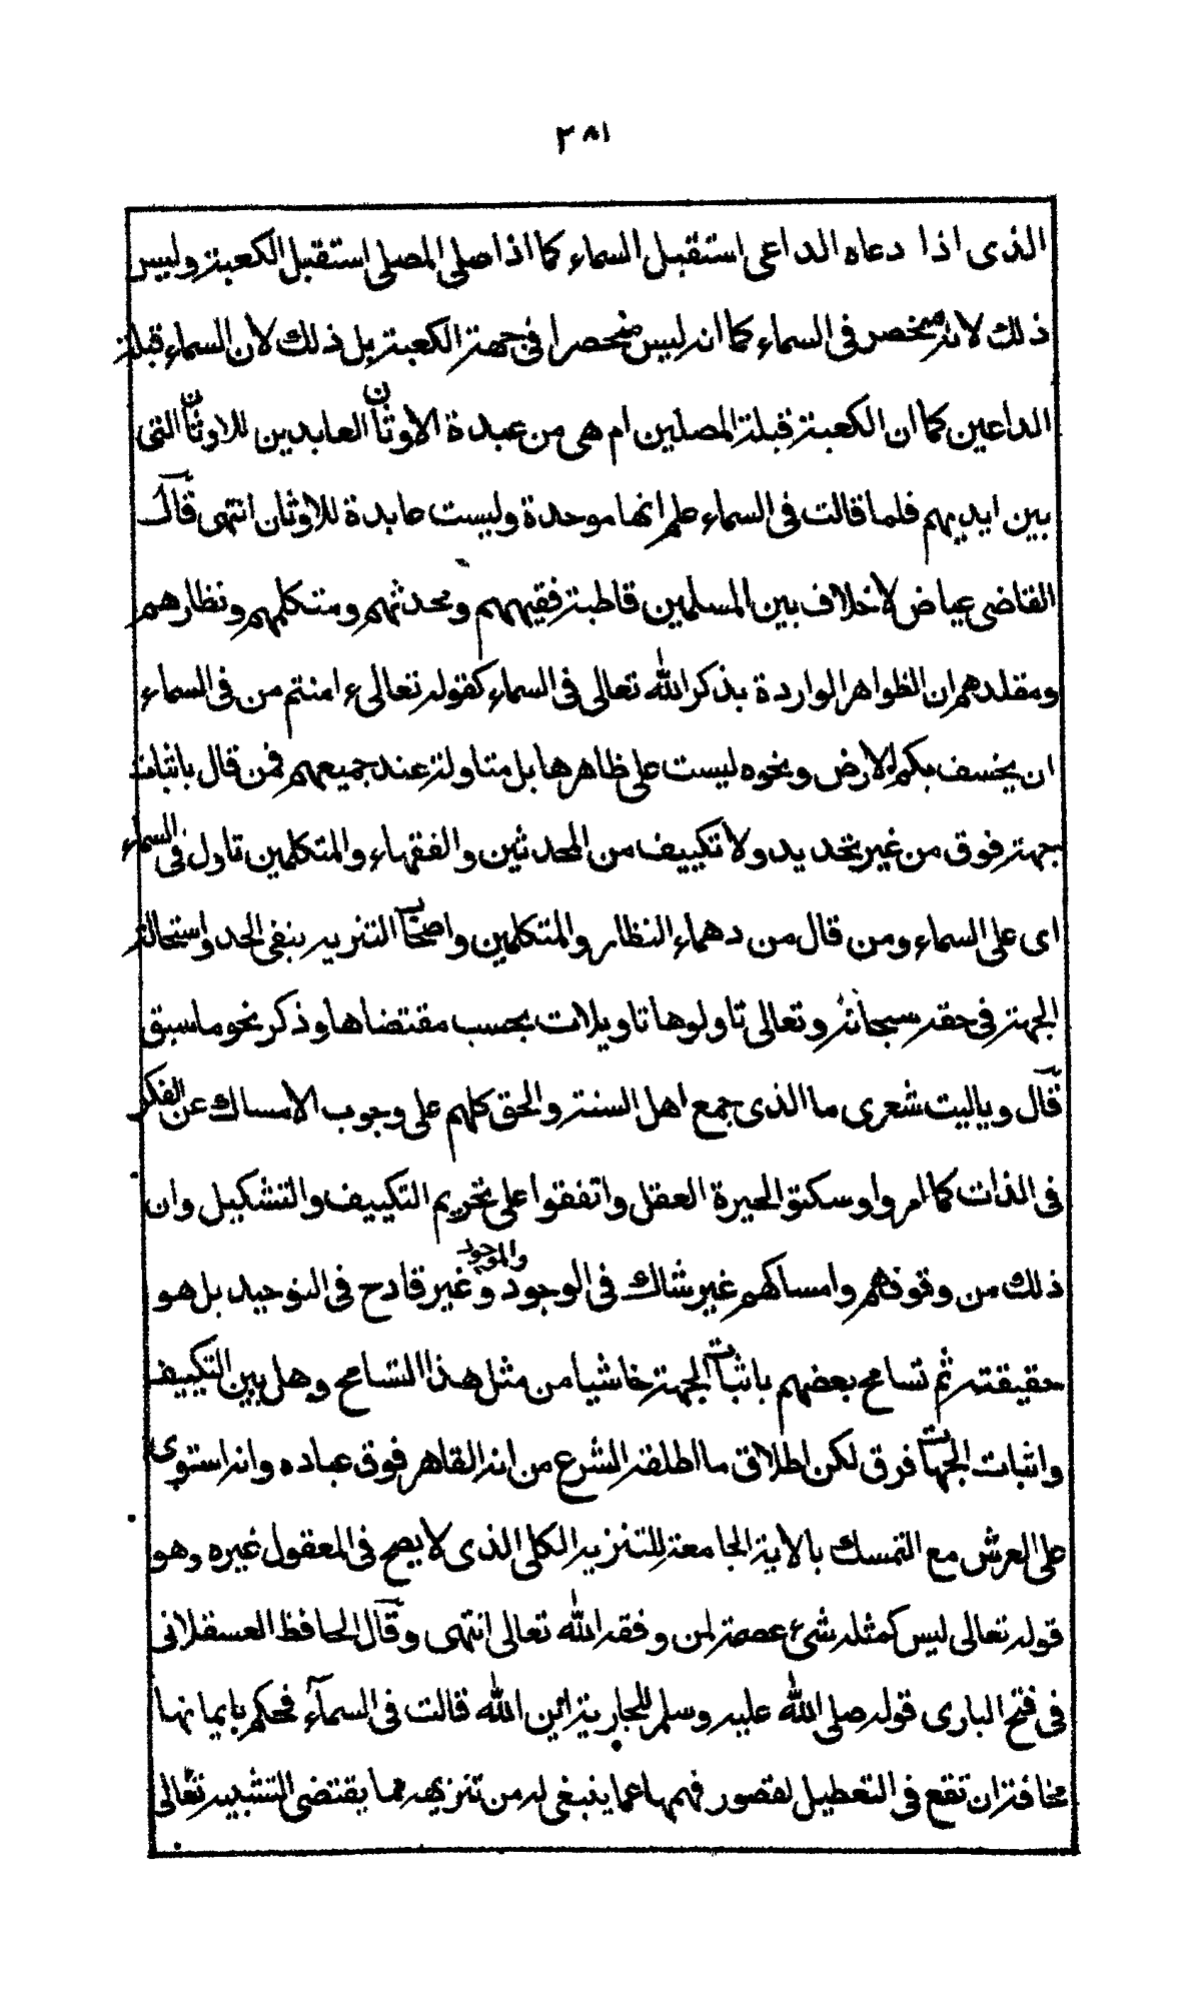 ٣٨١
الذى اذا دعاه الداعى استقبل السماء كما اذا صلى المصلى استقبل الكعبة وليس
ذلك لانه منحصر فى السماء كما انه ليس منحصرا فى جهة الكعبة بل ذلك لان السماء قبلة
الداعين كما ان الكعبة قبلة المصلين ام هى من عبدة الاوثان العابدين للاوثان التى
بين ايديهم فلما قالت فى السماء علم انها موحدة وليست عابدة للاوثان انتهى قال
القاضى عياض لاخلاف بين المسلمين قاطبة فقيههم ومحدثهم ومتكلمهم ونظارهم
ومقلدهم ان الظواهر الواردة بذكر الله تعالى فى السماء كقوله تعالى ء امنتم من فى السماء
ان يخسف بكم الارض ونحوه ليست على ظاهرها بل متاولة عند جميعهم فمن قال باثبات
جهة فوق من غير تحديد ولا تكييف من المحدثين والفقهاء والمتكلمين تاول فى السماء
اى على السماء ومن قال من دهماء النظار والمتكلمين واصحاب التنزيه بنفى الحد واستحالة
الجهة فى حقه سبحانه وتعالى تاولوها تاويلات بحسب مقتضاها وذكر نحو ما سبق
قال وياليت شعرى ما الذى جمع اهل السنة والحق كلهم على وجوب الامساك عن الفكر
فى الذات كما امروا وسكتوا لحيرة العقل واتفقوا على تحريم التكييف والتشكيل وان
ذلك من وقوفهم وامساكهم غير شاك فى الوجود والموجود وغير قادح فى التوحيد بل هو
حقيقته ثم تسامح بعضهم باثبات الجهة خاشيا من مثل هذا التسامح وهل بين التكييف
واثبات الجهات فرق لكن اطلاق ما اطلقه الشرع من انه القاهر فوق عباده وانه استوى
على العرش مع التمسك بالاية الجامعة للتنزيه الكلى الذى لا يصح فى المعقول غيره وهو
قوله تعالى ليس كمثله شئ عصمة لمن وفقه الله تعالى انتهى وقال الحافظ العسقلانى
فى فتح البارى قوله صلى الله عليه وسلم للجارية اين الله قالت فى السماء فحكم بايمانها
مخافة ان تقع فى التعطيل لقصور فهمها عما ينبغى له من تنزيهه مما يقتضى التشبيه تعالى